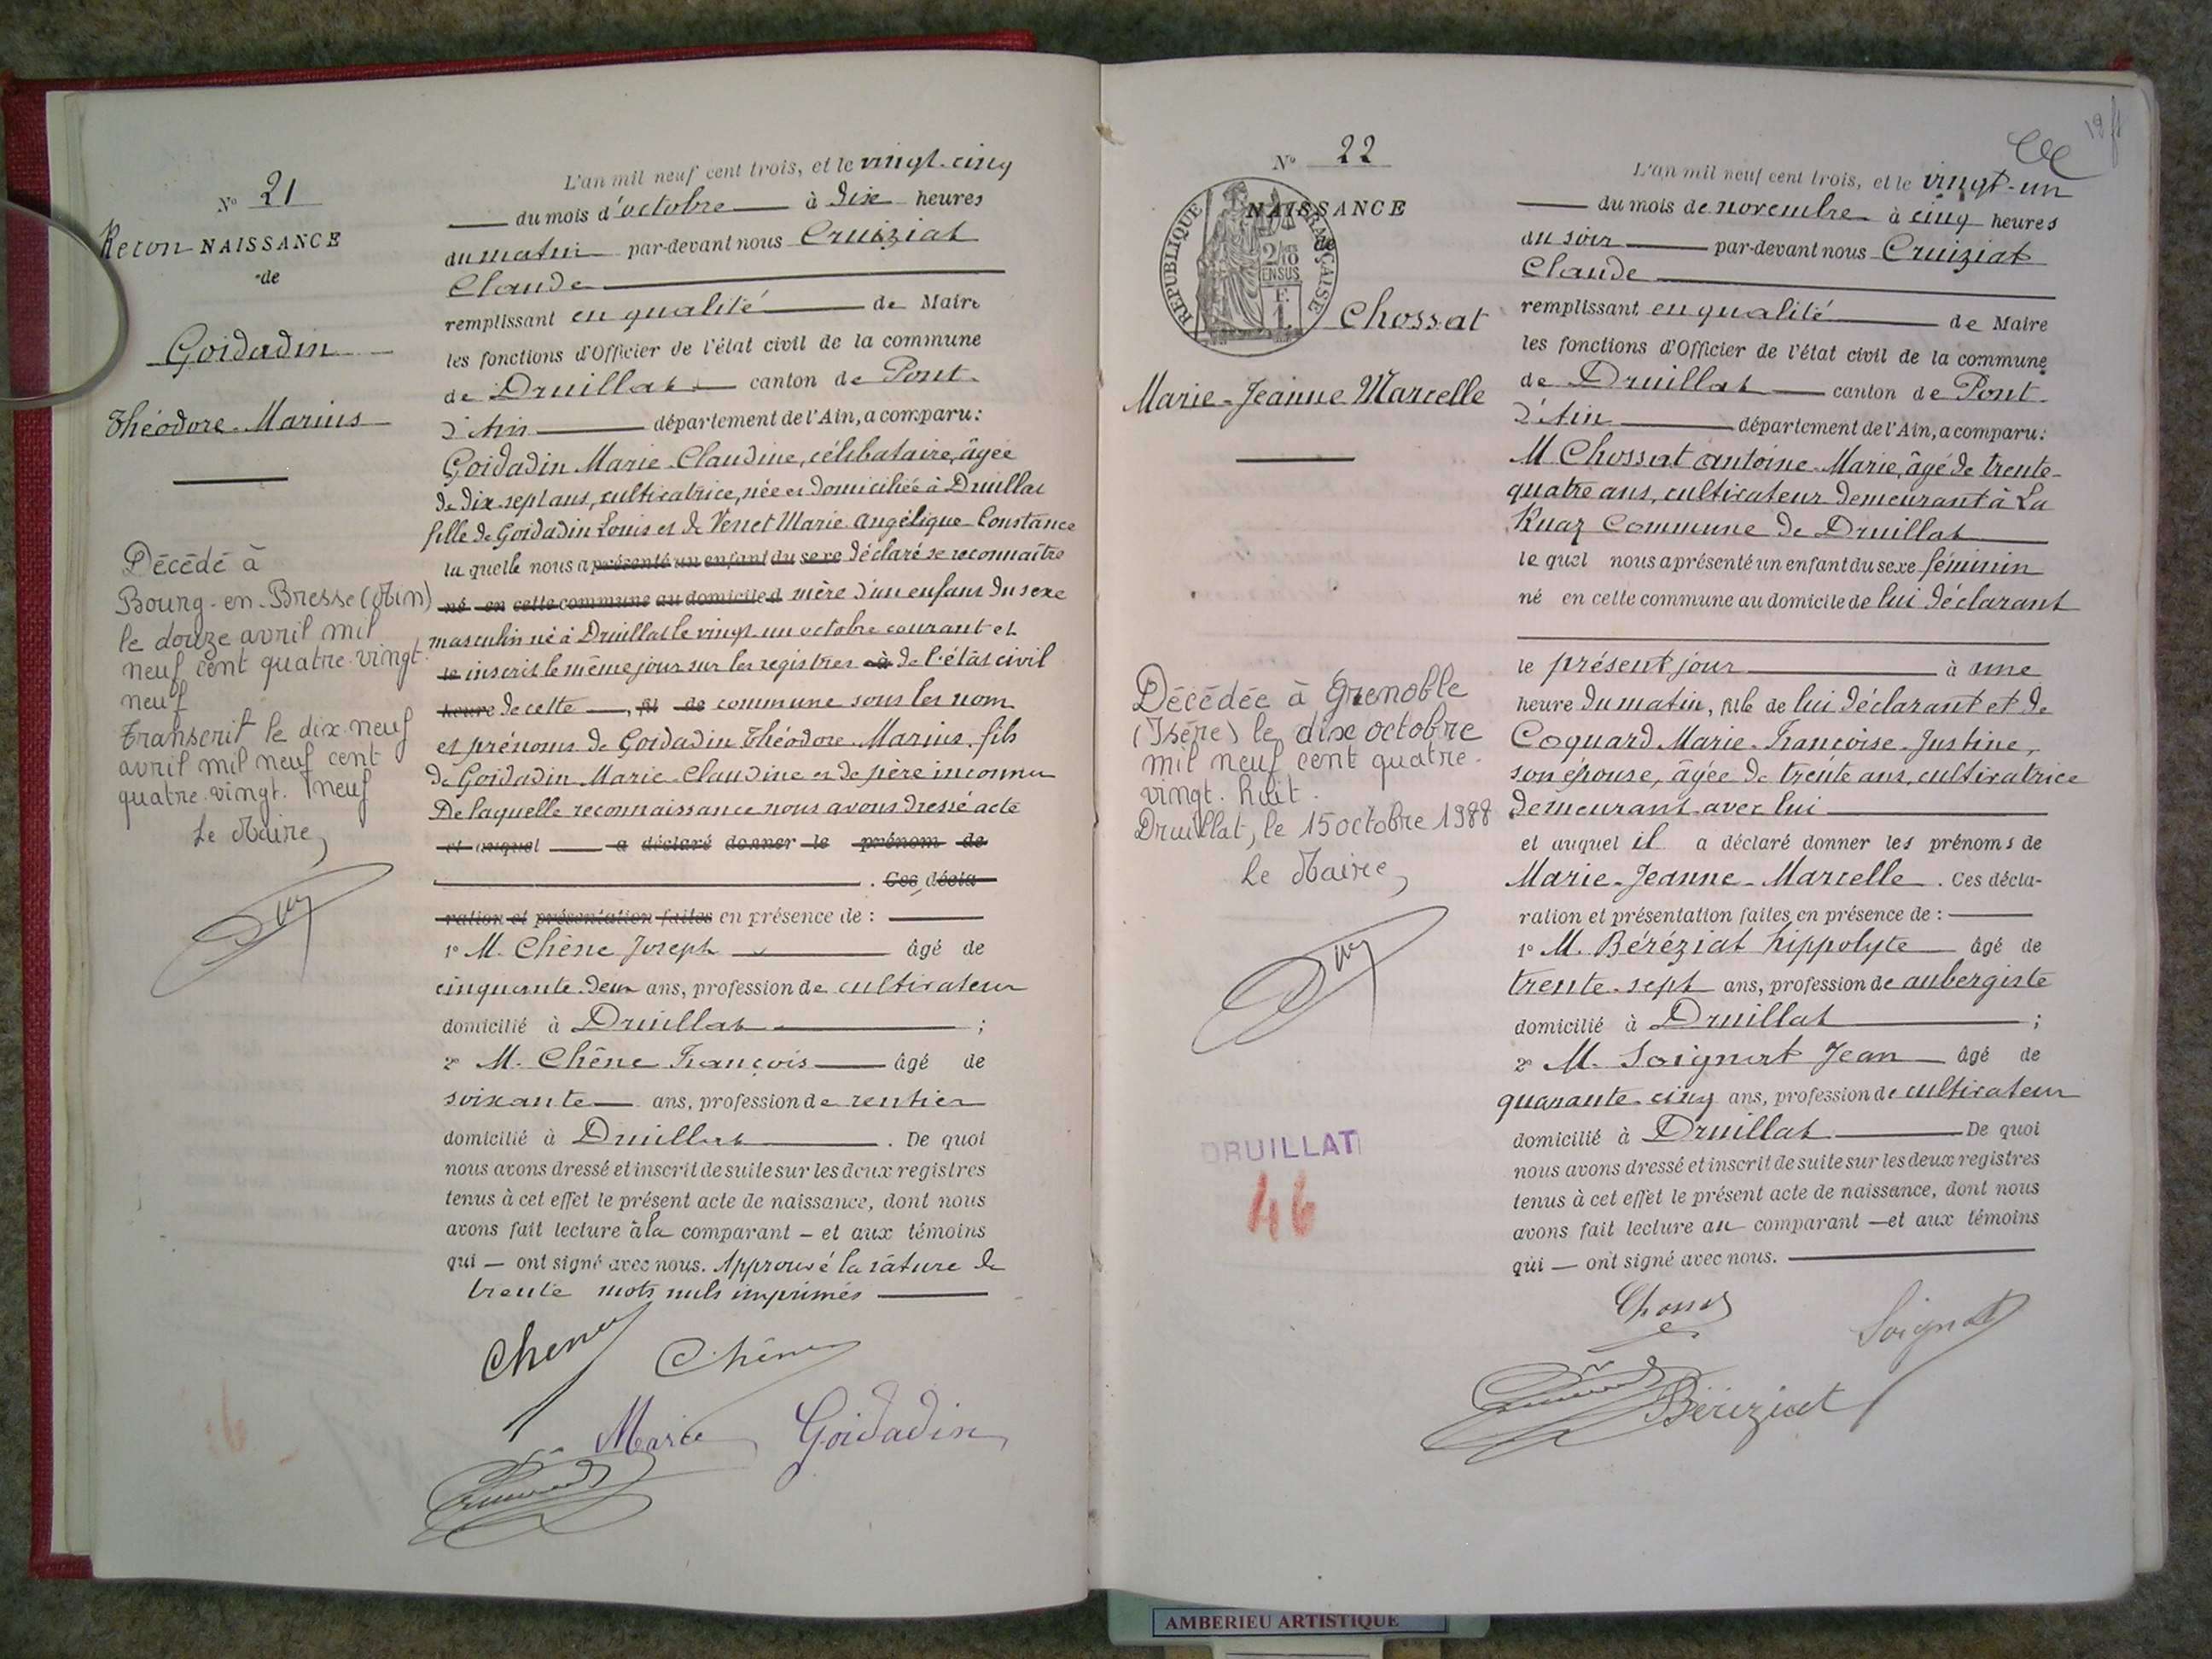 N° 21
Recon NAISSANCE
de
Goidadin
Théodore Marius
Décédé à
Bourg-en-Bresse (Ain)
le douze avril mil
neuf cent quatre vingt
neuf
Transcrit le dix neuf
avril mil neuf cent
quatre vingt neuf
Le Maire,
L'an mil neuf cent trois, et le vingt-cinq
du mois d'octobre à dix heures
du matin par-devant nous Cruiziat
Claude
remplissant en qualité de Maire
les fonctions d'Officier de l'état civil de la commune
de Druillat canton de Pont-
d'Ain département de l'Ain, a comparu:
Goidadin Marie Claudine, célibataire, âgée
de dix-sept ans, cultivatrice, née et domiciliée à Druillat
fille de Goidadin Louis et de Venet Marie Angélique Constance
la quelle nous a présenté un enfant du sexe déclaré se reconnaître
né en cette commune au domicile d mère d'un enfant du sexe
masculin né à Druillat le vingt un octobre courant et
le inscrit le même jour sur les registres à de l'état civil
heure de cette , fil de commune sous les nom
et prénoms de Goidadin Théodore Marius, fils
de Goidadin Marie Claudine et de père inconnu
De laquelle reconnaissance nous avons dressé acte
et auquel a déclaré donner le prénom de
. Ces décla
ration et présentation faites en présence de :
1° M. Chêne Joseph âgé de
cinquante deux ans, profession de cultivateur
domicilié à Druillat ;
2° M. Chêne François âgé de
soixante ans, profession de rentier
domicilié à Druillat . De quoi
nous avons dressé et inscrit de suite sur les deux registres
tenus à cet effet le présent acte de naissance, dont nous
avons fait lecture à la comparant – et aux témoins
qui — ont signé avec nous. Approuvé la rature de
trente mots nuls imprimés
Chene
Chêne
Marie Goidadin
N° 22
NAISSANCE
de
RÉPUBLIQUE FRANÇAISE
Chossat
Marie-Jeanne Marcelle
Décédée à Grenoble
(Isère) le dix octobre
mil neuf cent quatre-
vingt. huit.
Druillat, le 15 octobre 1988
Le Maire,
DRUILLAT
46
L'an mil neuf cent trois, et le vingt-un
du mois de novembre à cinq heures
du soir par-devant nous Cruiziat
Claude
remplissant en qualité de Maire
les fonctions d'Officier de l'état civil de la commune
de Druillat canton de Pont-
d'Ain département de l'Ain, a comparu:
M Chossat Antoine Marie, âgé de trente-
quatre ans, cultivateur demeurant à La
Ruaz Commune de Druillat
le quel nous a présenté un enfant du sexe féminin
né en cette commune au domicile de lui déclarant
le présent jour à une
heure du matin, fille de lui déclarant et de
Coquard Marie-Françoise-Justine,
son épouse, âgée de trente ans, cultivatrice
demeurant avec lui
et auquel il a déclaré donner les prénoms de
Marie-Jeanne-Marcelle . Ces décla-
ration et présentation faites en présence de :
1° M. Béréziat hippolyte âgé de
trente-sept ans, profession de aubergiste
domicilié à Druillat ;
2° M. Soignat Jean âgé de
quarante-cinq ans, profession de cultivateur
domicilié à Druillat De quoi
nous avons dressé et inscrit de suite sur les deux registres
tenus à cet effet le présent acte de naissance, dont nous
avons fait lecture au comparant — et aux témoins
qui — ont signé avec nous.
Chossat
Soignat
Béréziat
AMBERIEU ARTISTIQUE